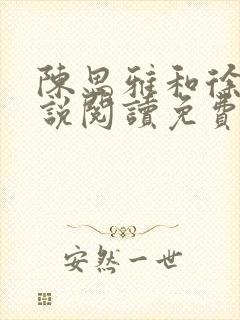 陳思雅和徐
說閱讀免費
安然一世